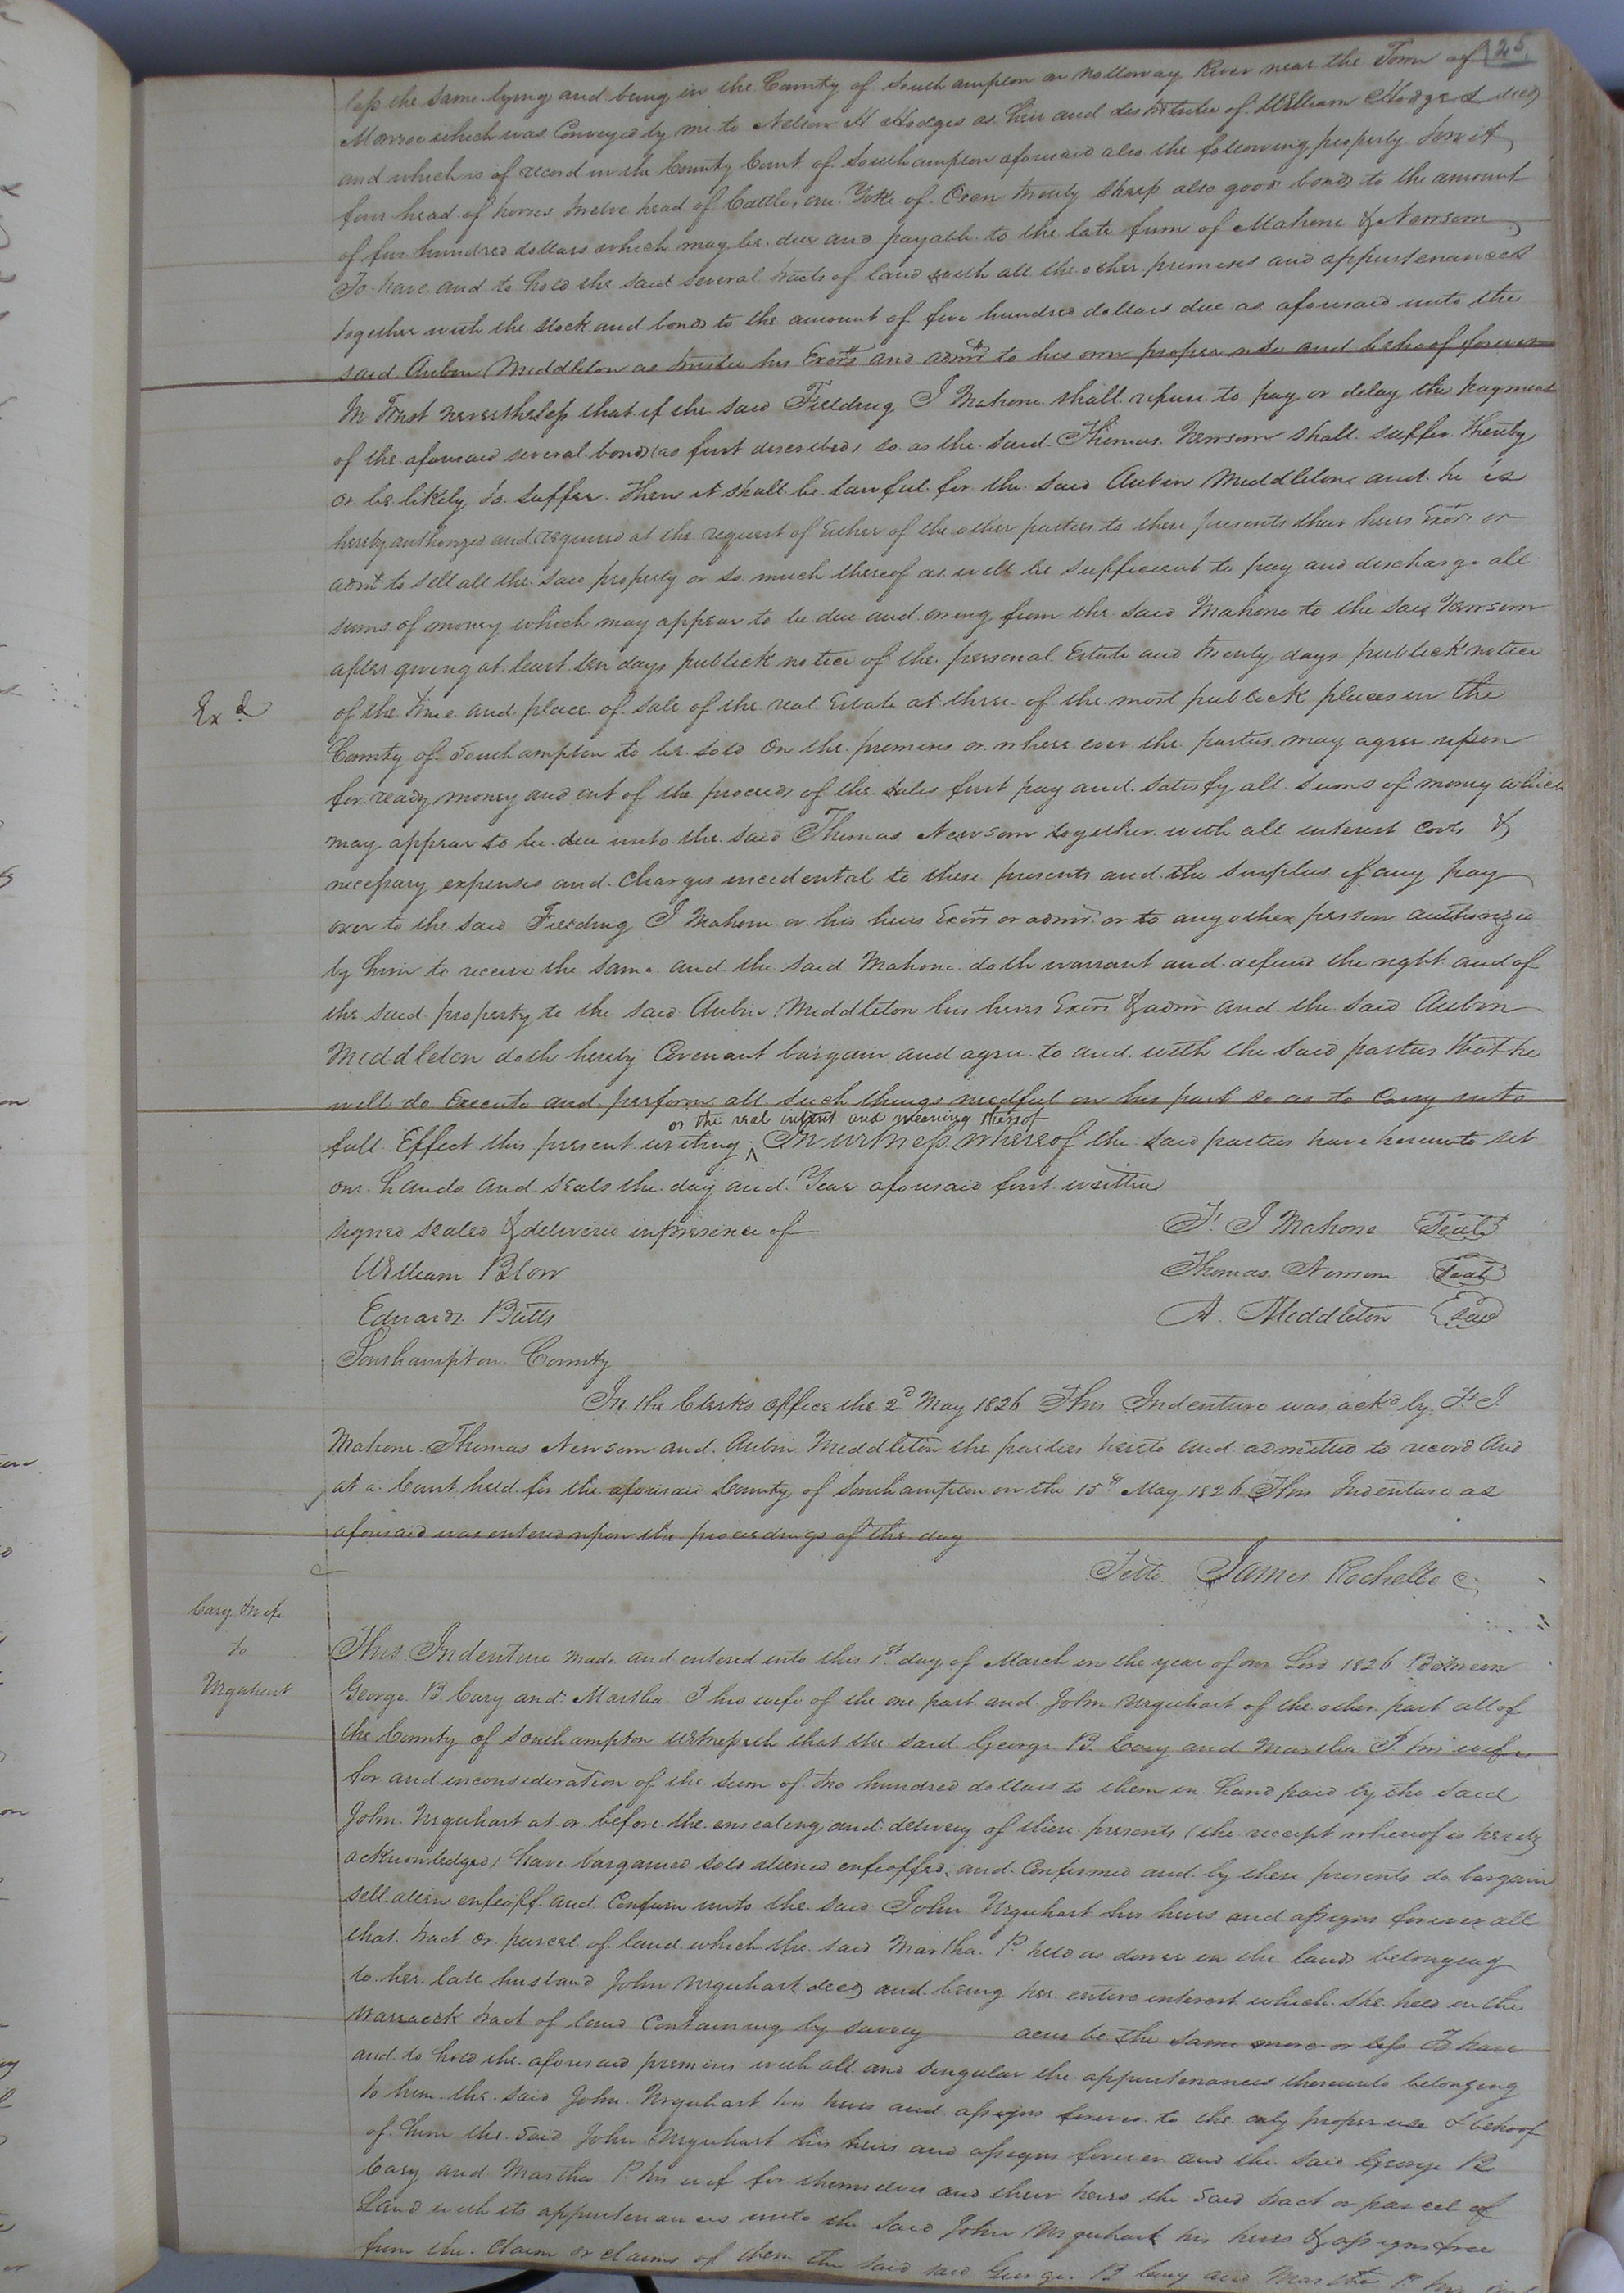 125
less the same lying and being in the County of Southampton on Nottoway River near the Town of
Monroe which was Conveyed by me to Nelson H Hodges as heir and distributee of William Hodges decd
and which is of record in the County Court of Southampton aforesaid also the following property towit
four head of horses, twelve head of Cattle, one Yoke of Oxen twenty Sheep also good bonds to the amount
of five hundred dollars which may be due and payable to the late firm of Mahone & Newsom
To have and to hold the said several tracts of land with all the other premises and appurtenances
together with the stock and bonds to the amount of five hundred dollars due as aforesaid unto the
said Aubin Middleton as trustee his Exors and admrs to his own proper use and behoof forever
In Trust nevertheless that if the said Fielding J Mahone shall refuse to pay or delay the payment
of the aforesaid several bonds (as first described) so as the said Thomas Newsom shall suffer thereby
or be likely to suffer then it shall be lawful for the said Aubin Middleton and he is
hereby authorized and required at the request of Either of the other parties to these presents their heirs Exors or
admrs to sell all the said property or so much thereof as will be sufficient to pay and discharge all
sums of money which may appear to be due and owing from the said Mahone to the said Newsom
after giving at least ten days publick notice of the personal Estate and twenty days publick notice
Exd
of the time and place of sale of the real Estate at three of the most publick places in the
County of Southampton to be sold on the premises or where ever the parties may agree upon
for ready money and out of the proceeds of the sales first pay and satisfy all sums of money which
may appear to be due unto the said Thomas Newsom together with all interest Costs &
necessary expenses and charges incidental to these presents and the surplus if any pay
over to the said Fielding J Mahone or his heirs Exors or admrs or to any other person authorized
by him to receive the same and the said Mahone doth warrant and defend the right and of
the said property to the said Aubin Middleton his heirs Exors & admrs and the said Aubin
Middleton doth hereby Covenant bargain and agree to and with the said parties that he
will do Execute and perform all such things needful on his part so as to Carry into
or the real intent and meaning thereof
full Effect this present writing ^ In Witness whereof the said parties have hereunto set
our hands and seals the day and Year aforesaid first written
signed sealed & delivered in presence of
F. J Mahone Seal
William Blow
Thomas Newsom Seal
Edward Butts
A. Middleton Seal
Southampton County
In the Clerks office the 2d May 1826 This Indenture was ackd by F. J.
Mahone Thomas Newsom and Aubin Middleton the parties hereto and admitted to record And
at a Court held for the aforesaid County of Southampton on the 15th May 1826 This Indenture as
aforesaid was entered upon the proceedings of the day
Teste James Rochelle C.
Cary & wife
to
Urquhart
This Indenture made and entered into this 1st day of March in the year of our Lord 1826 Between
George B. Cary and Martha P his wife of the one part and John Urquhart of the other part all of
the County of Southampton Witnesseth that the said George B Cary and Martha P. his wife
for and in consideration of the sum of two hundred dollars to them in hand paid by the said
John Urquhart at or before the ensealing and delivery of these presents (the receipt whereof is hereby
acknowledged) have bargained sold aliened enfeoffed and Confirmed and by these presents do bargain
sell alien enfeoff and Confirm unto the said John Urquhart his heirs and assigns forever all
that tract or parcel of land which the said Martha P. held as dower in the lands belonging
to her late husband John Urquhart decd and being her entire interest which she held in the
tract of land Containing by survey acres be the same more or less To have
and to hold the aforesaid premises with all and singular the appurtenances thereunto belonging
to him the said John Urquhart his heirs and assigns forever to the only proper use & behoof
of him the said John Urquhart his heirs and assigns forever and the said George B
Cary and Martha P. his wife for themselves and their heirs the said tract or parcel of
Land with its appurtenances unto the said John Urquhart his heirs & assigns free
from the Claim or claims of them the said said George B Cary and Martha P his